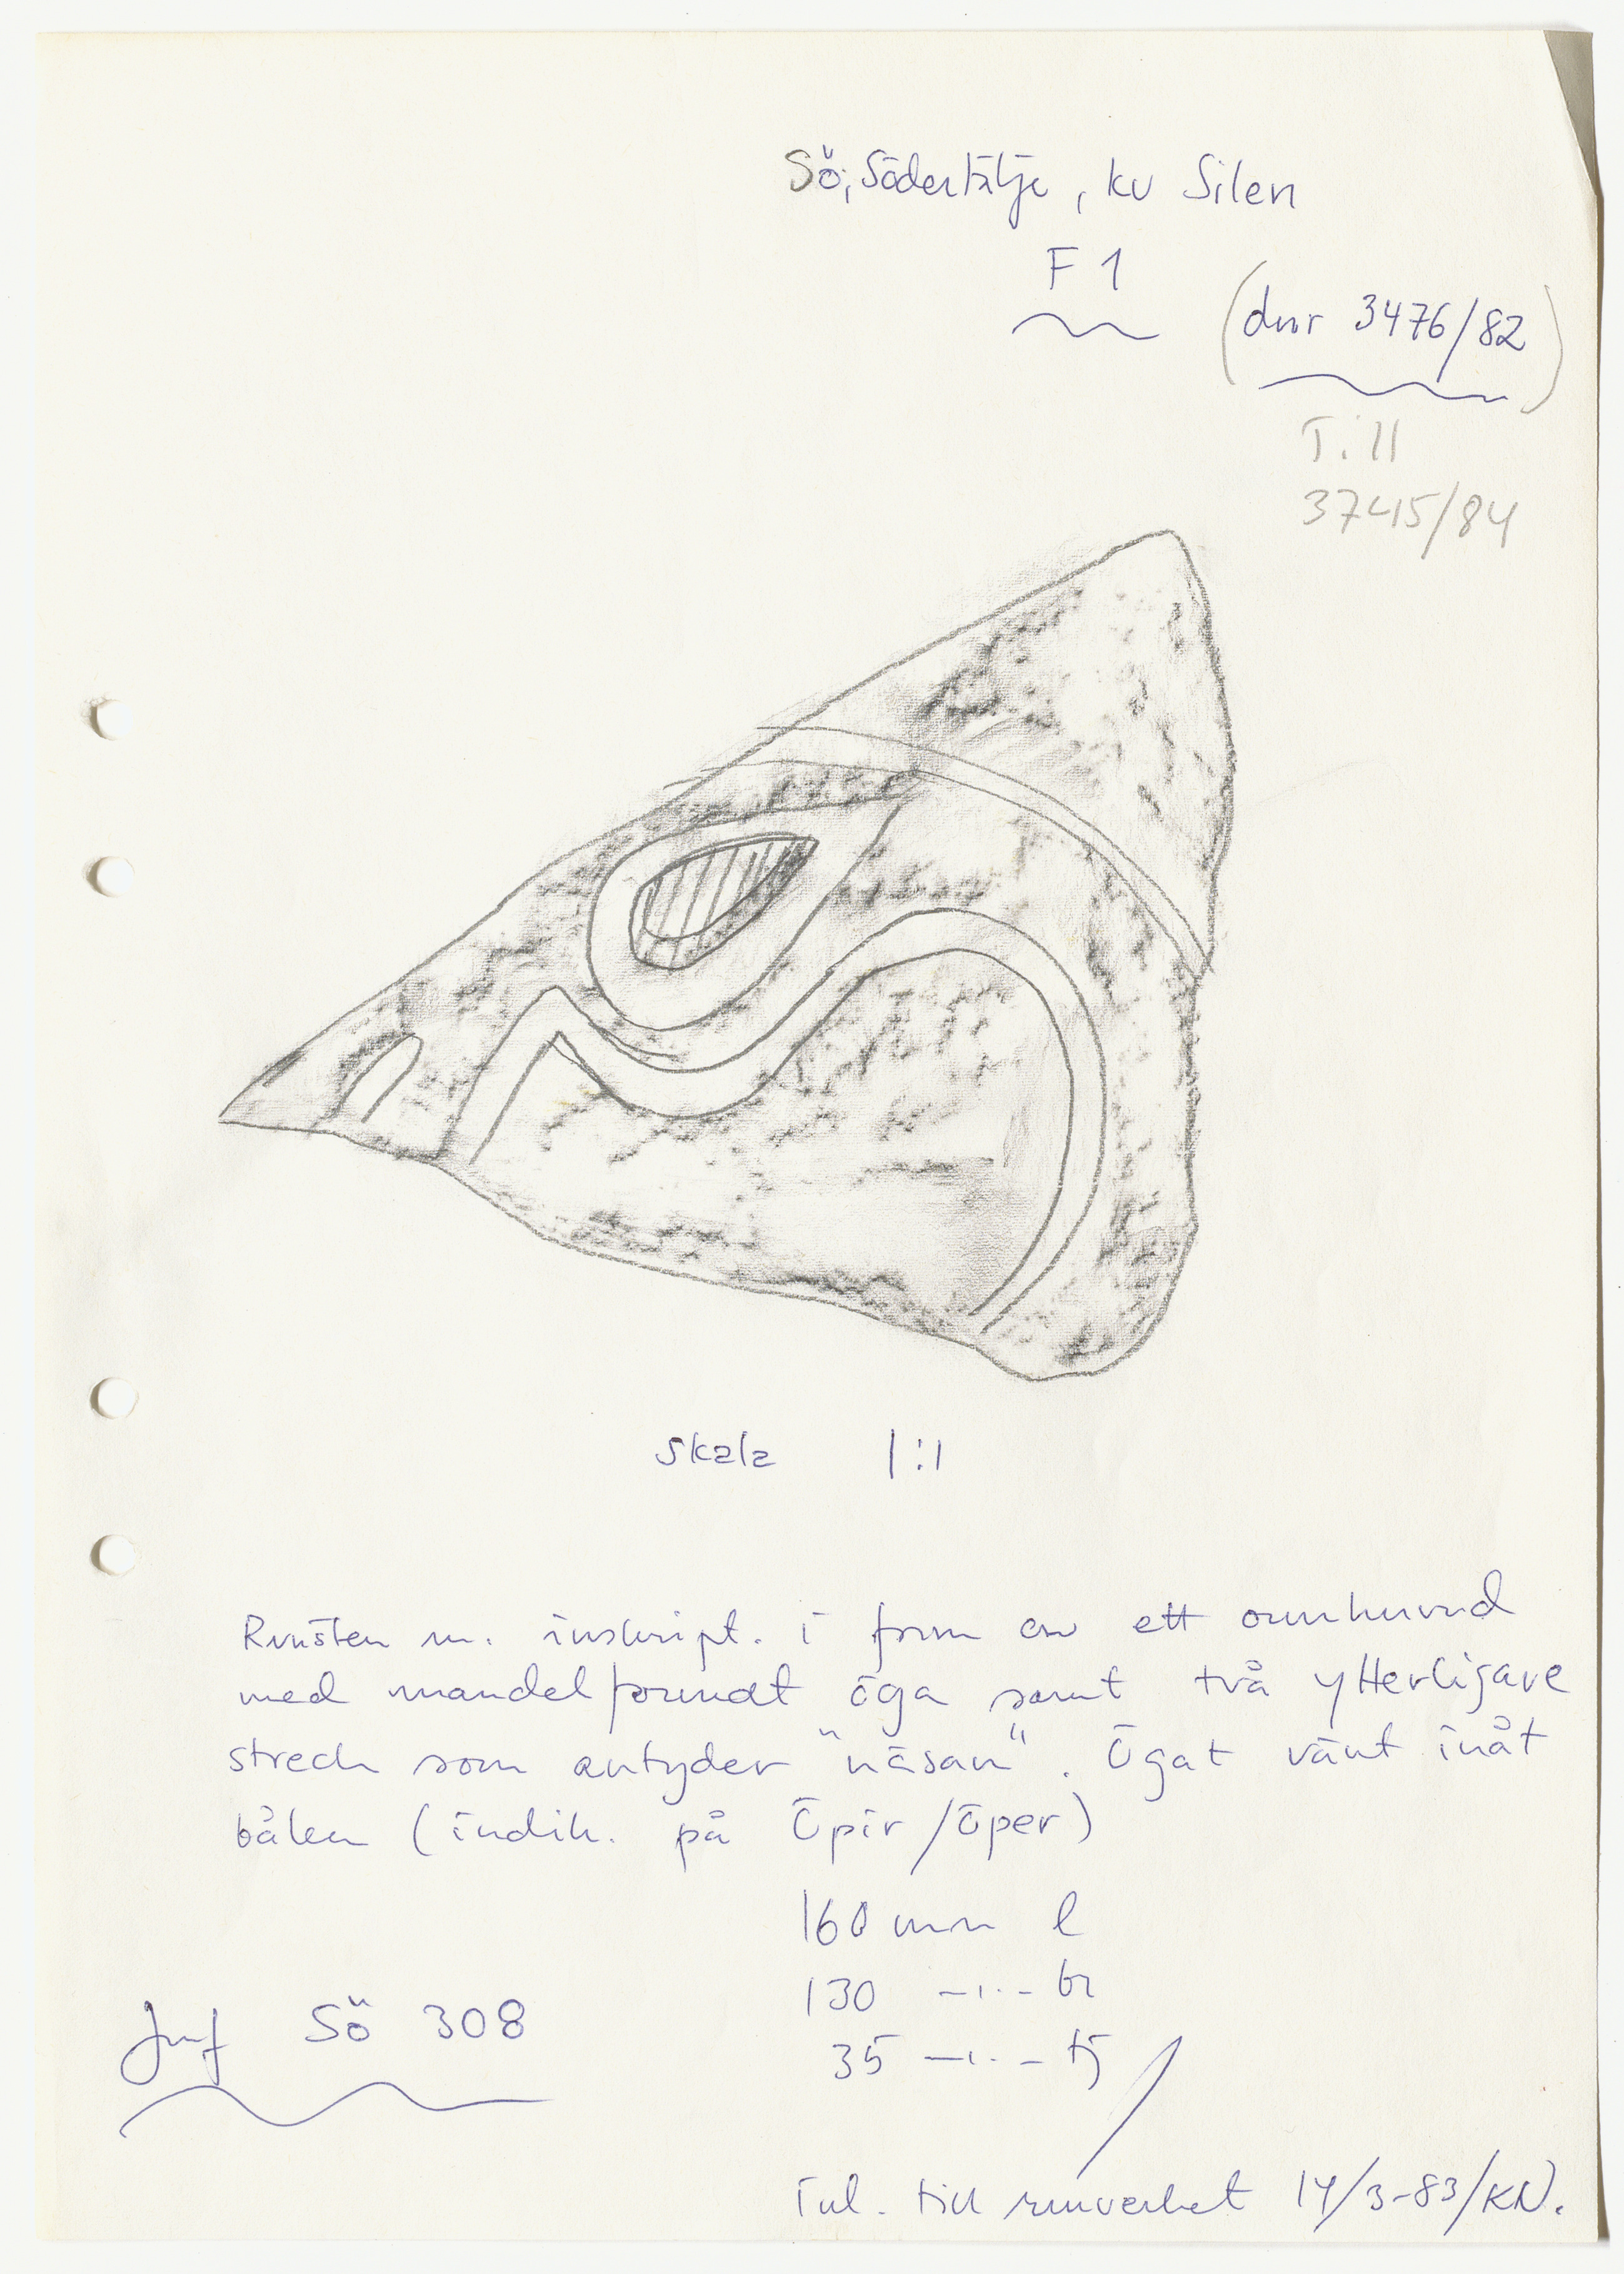 Sö, Södertälje, kv Silen
F 1
(dnr 3476/82)
Till
3745/84
Skala 1:1
Runsten m. inskript. i form av ett ormhuvud
med mandelformat öga samt två ytterligare
streck som antyder "näsan". Ögat vänt inåt
bålen (indik. på Öpir/Öper)
160 mm l
130 -"- br
35 -"- tj
Jmf Sö 308
Inl. till runverket 14/3-83/KN.